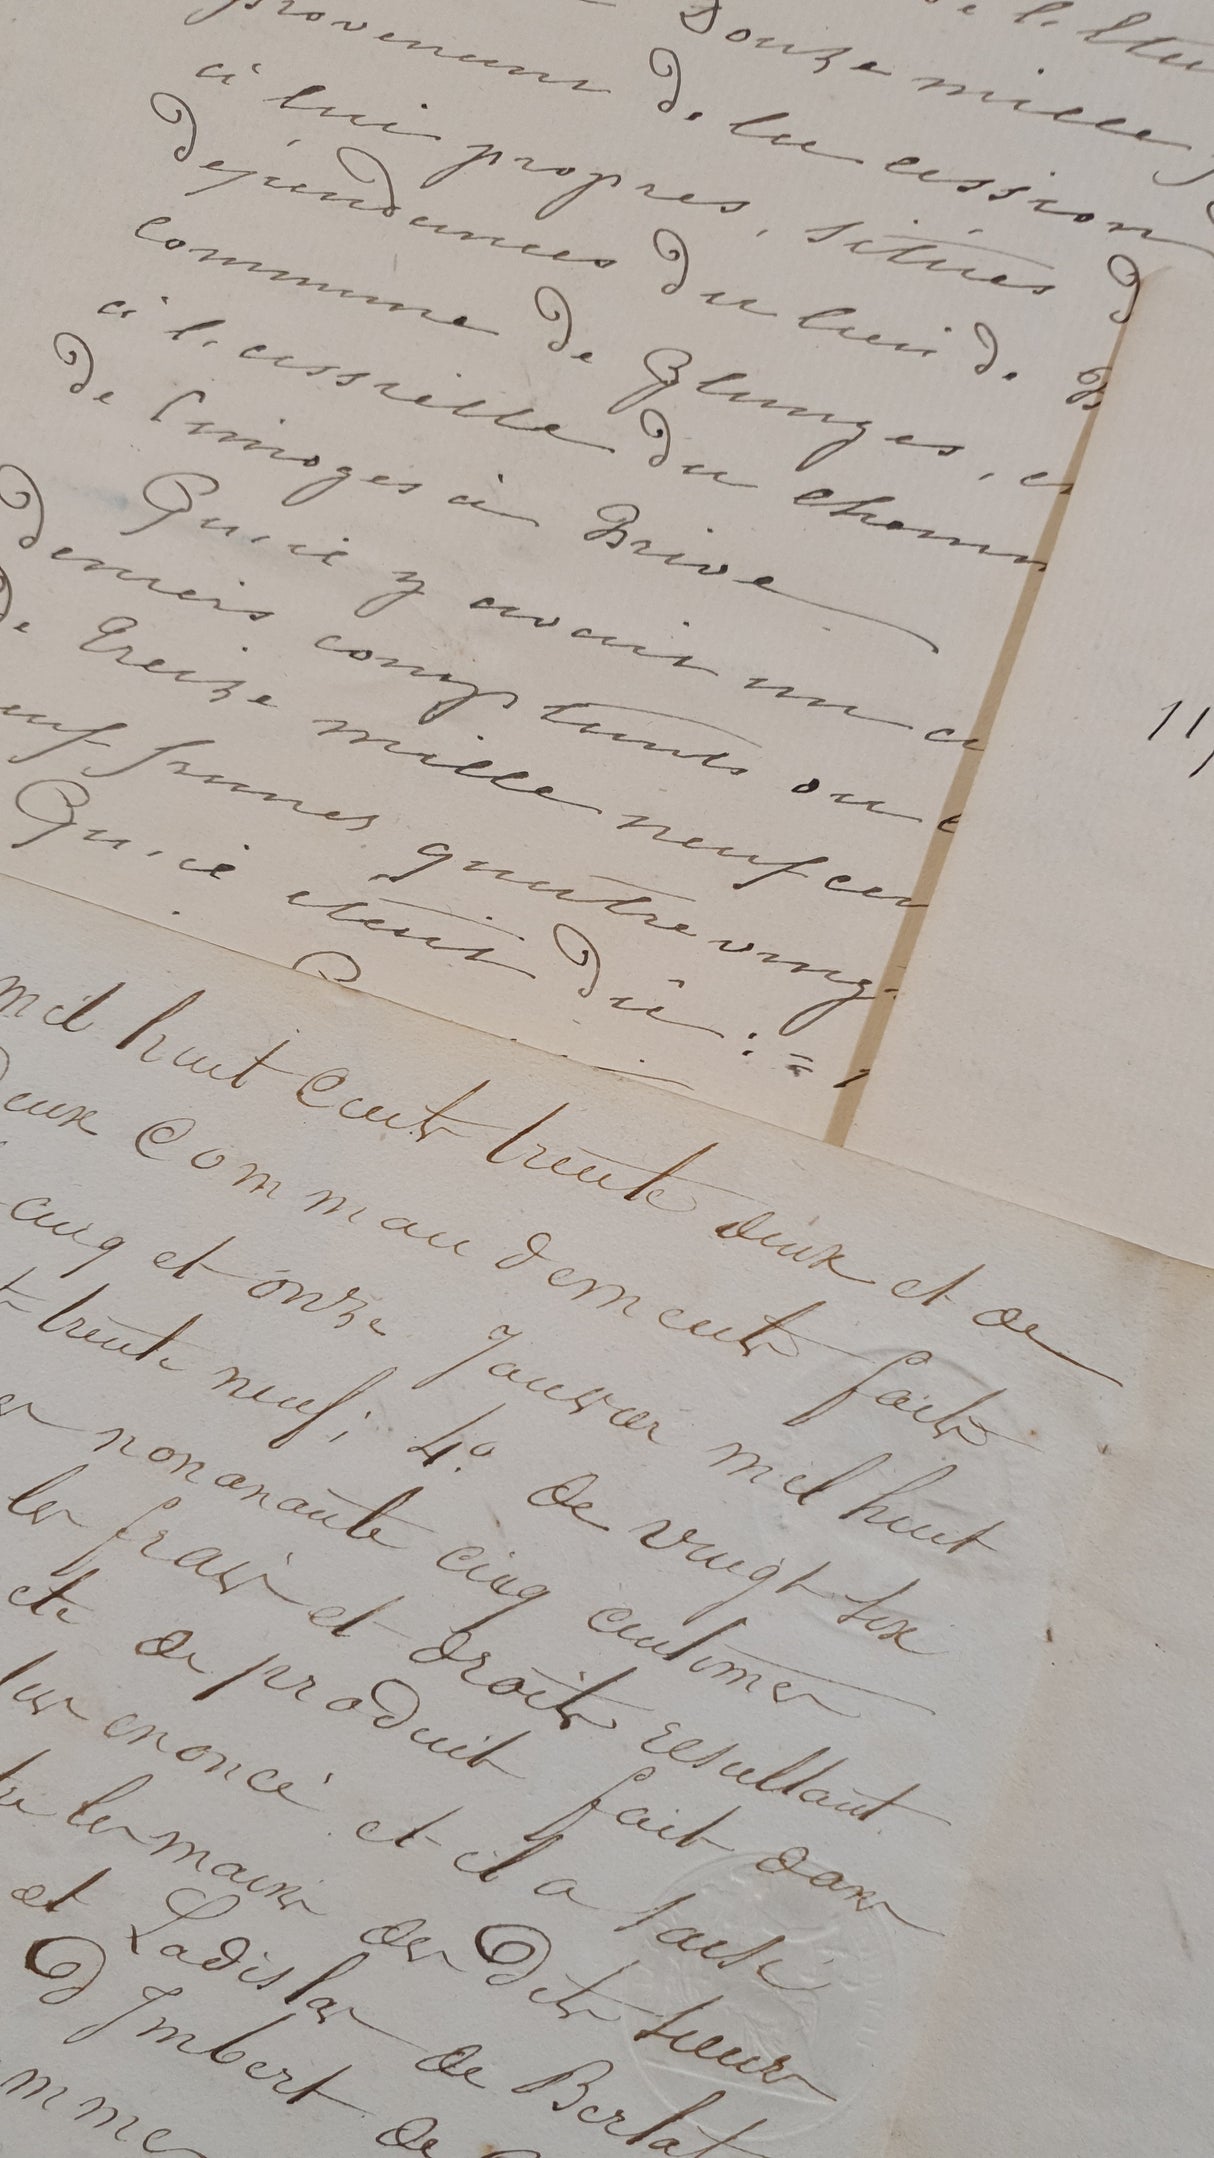 de l'Etu
Douze mille
provenant de la cession
à lui propres, situés d
dépendances du lieu de B
commune de Glanges, e
à l. asseille du chemin
de Limoges à Brive
Qu'il y avait un a
deniers comptants ou e
de treize mille neuf cen
euf francs quatre vingt
Qu'il était dû :
11
mil huit cents trente deux et de
deux commandements faits
cinq et onze Janvier mil huit
trente neuf; 4° de vingt six
nonanante cinq centimes
les frais et droits resultant
acte de produit fait dans
sus enoncé et il a saisi
les mains des dits sieurs
et Ladislas de Berlat
d'Imbert de
mme